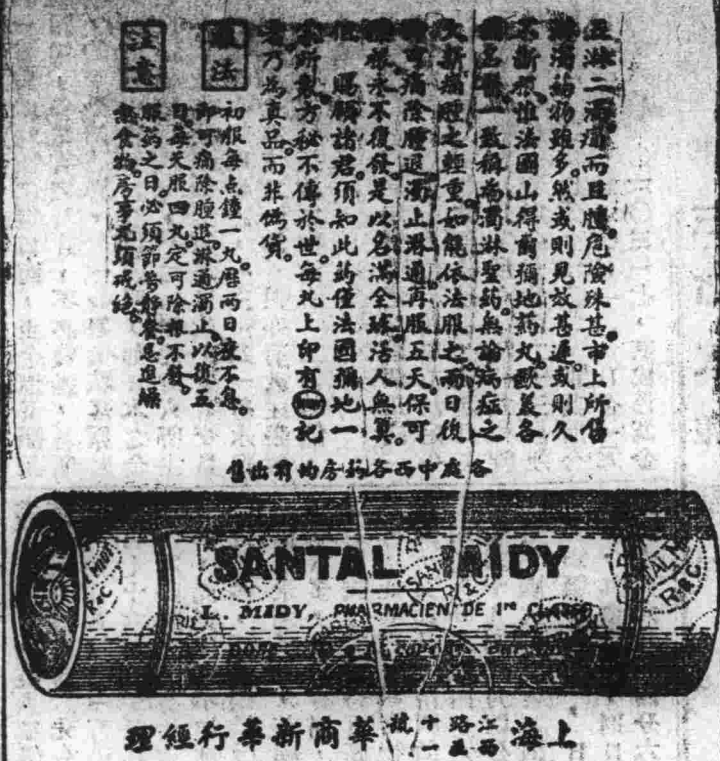 五淋二濁痛而且腫危險殊甚市上所售
濁药物雖多然或則見效甚遲或則久
不斷根惟法國山得爾彌地药丸歐美各
名醫一致稱為濁淋聖药無論病症之
久新痛腫之輕重如能依法服之兩日後
可痛除腫退濁止淋通再服五天保可
根永不復發。是以名滿全球活人無算。
惟 賜顧諸君須知此药僅法國彌地一
家所製方秘不傳於世。每丸上印有記
乃為真品而非偽貨。
服法
初服每点鐘一丸歷兩日夜不息。
即可痛除腫退淋通濁止。以後五
日每天服四丸定可除根不發。
注意
服药之日必須節勞靜養。忌進燥
熱食物。房事尤須戒絕。
各處中西各药房均有出售
SANTAL MIDY
L. MIDY, PHARMACIEN DE 1re CLASSE
上海江西路五十一號華商新華行經理